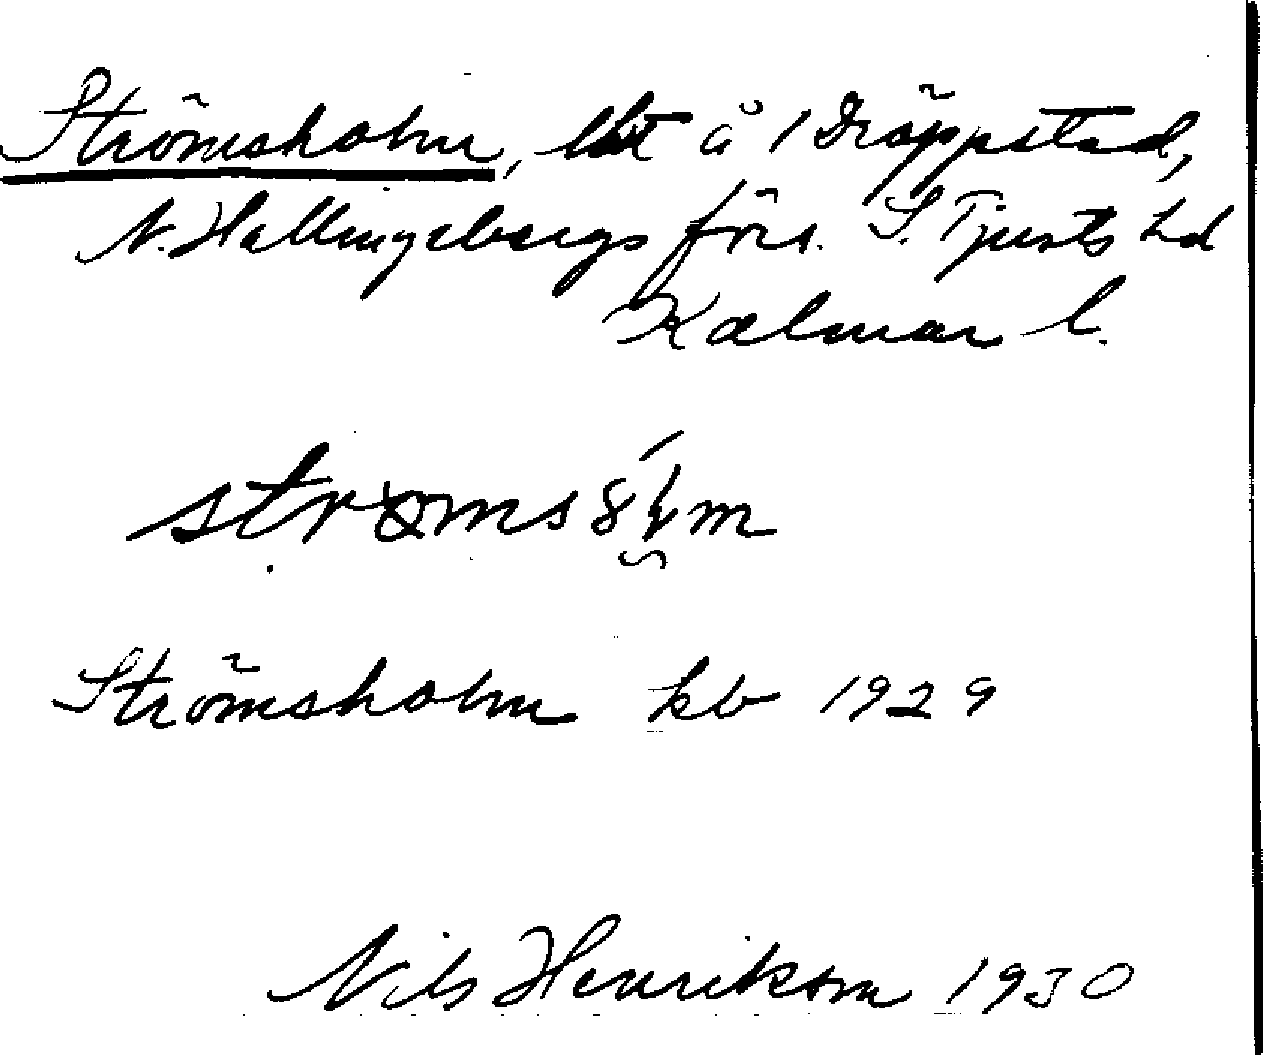 Strömsholm, lht å 1 Dröppstad,
N. Hallingebergs förs. S. Tjusts hd
Kalmar l.
Strömsholm kb 1929
Nils Henrikson 1930